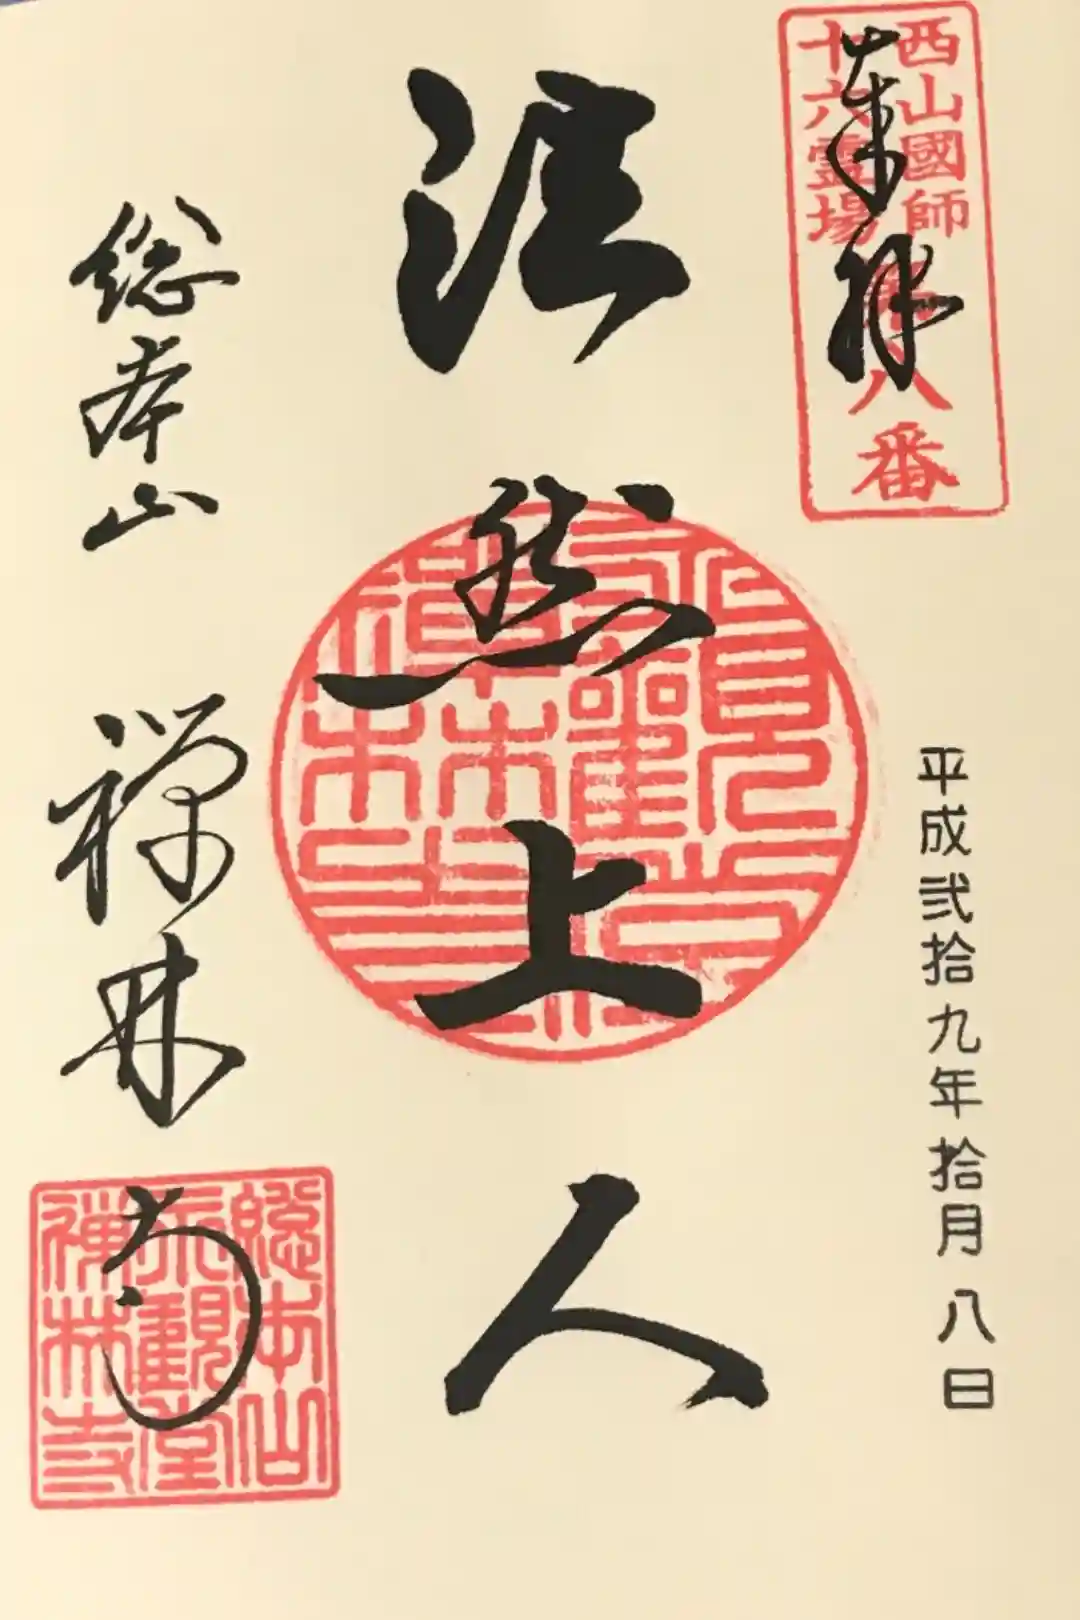 西山國師
十六霊場
第八番
奉拝
平成弐拾九年拾月八日
法然上人
総本山　禅林寺
総本山
永觀堂
禅林寺